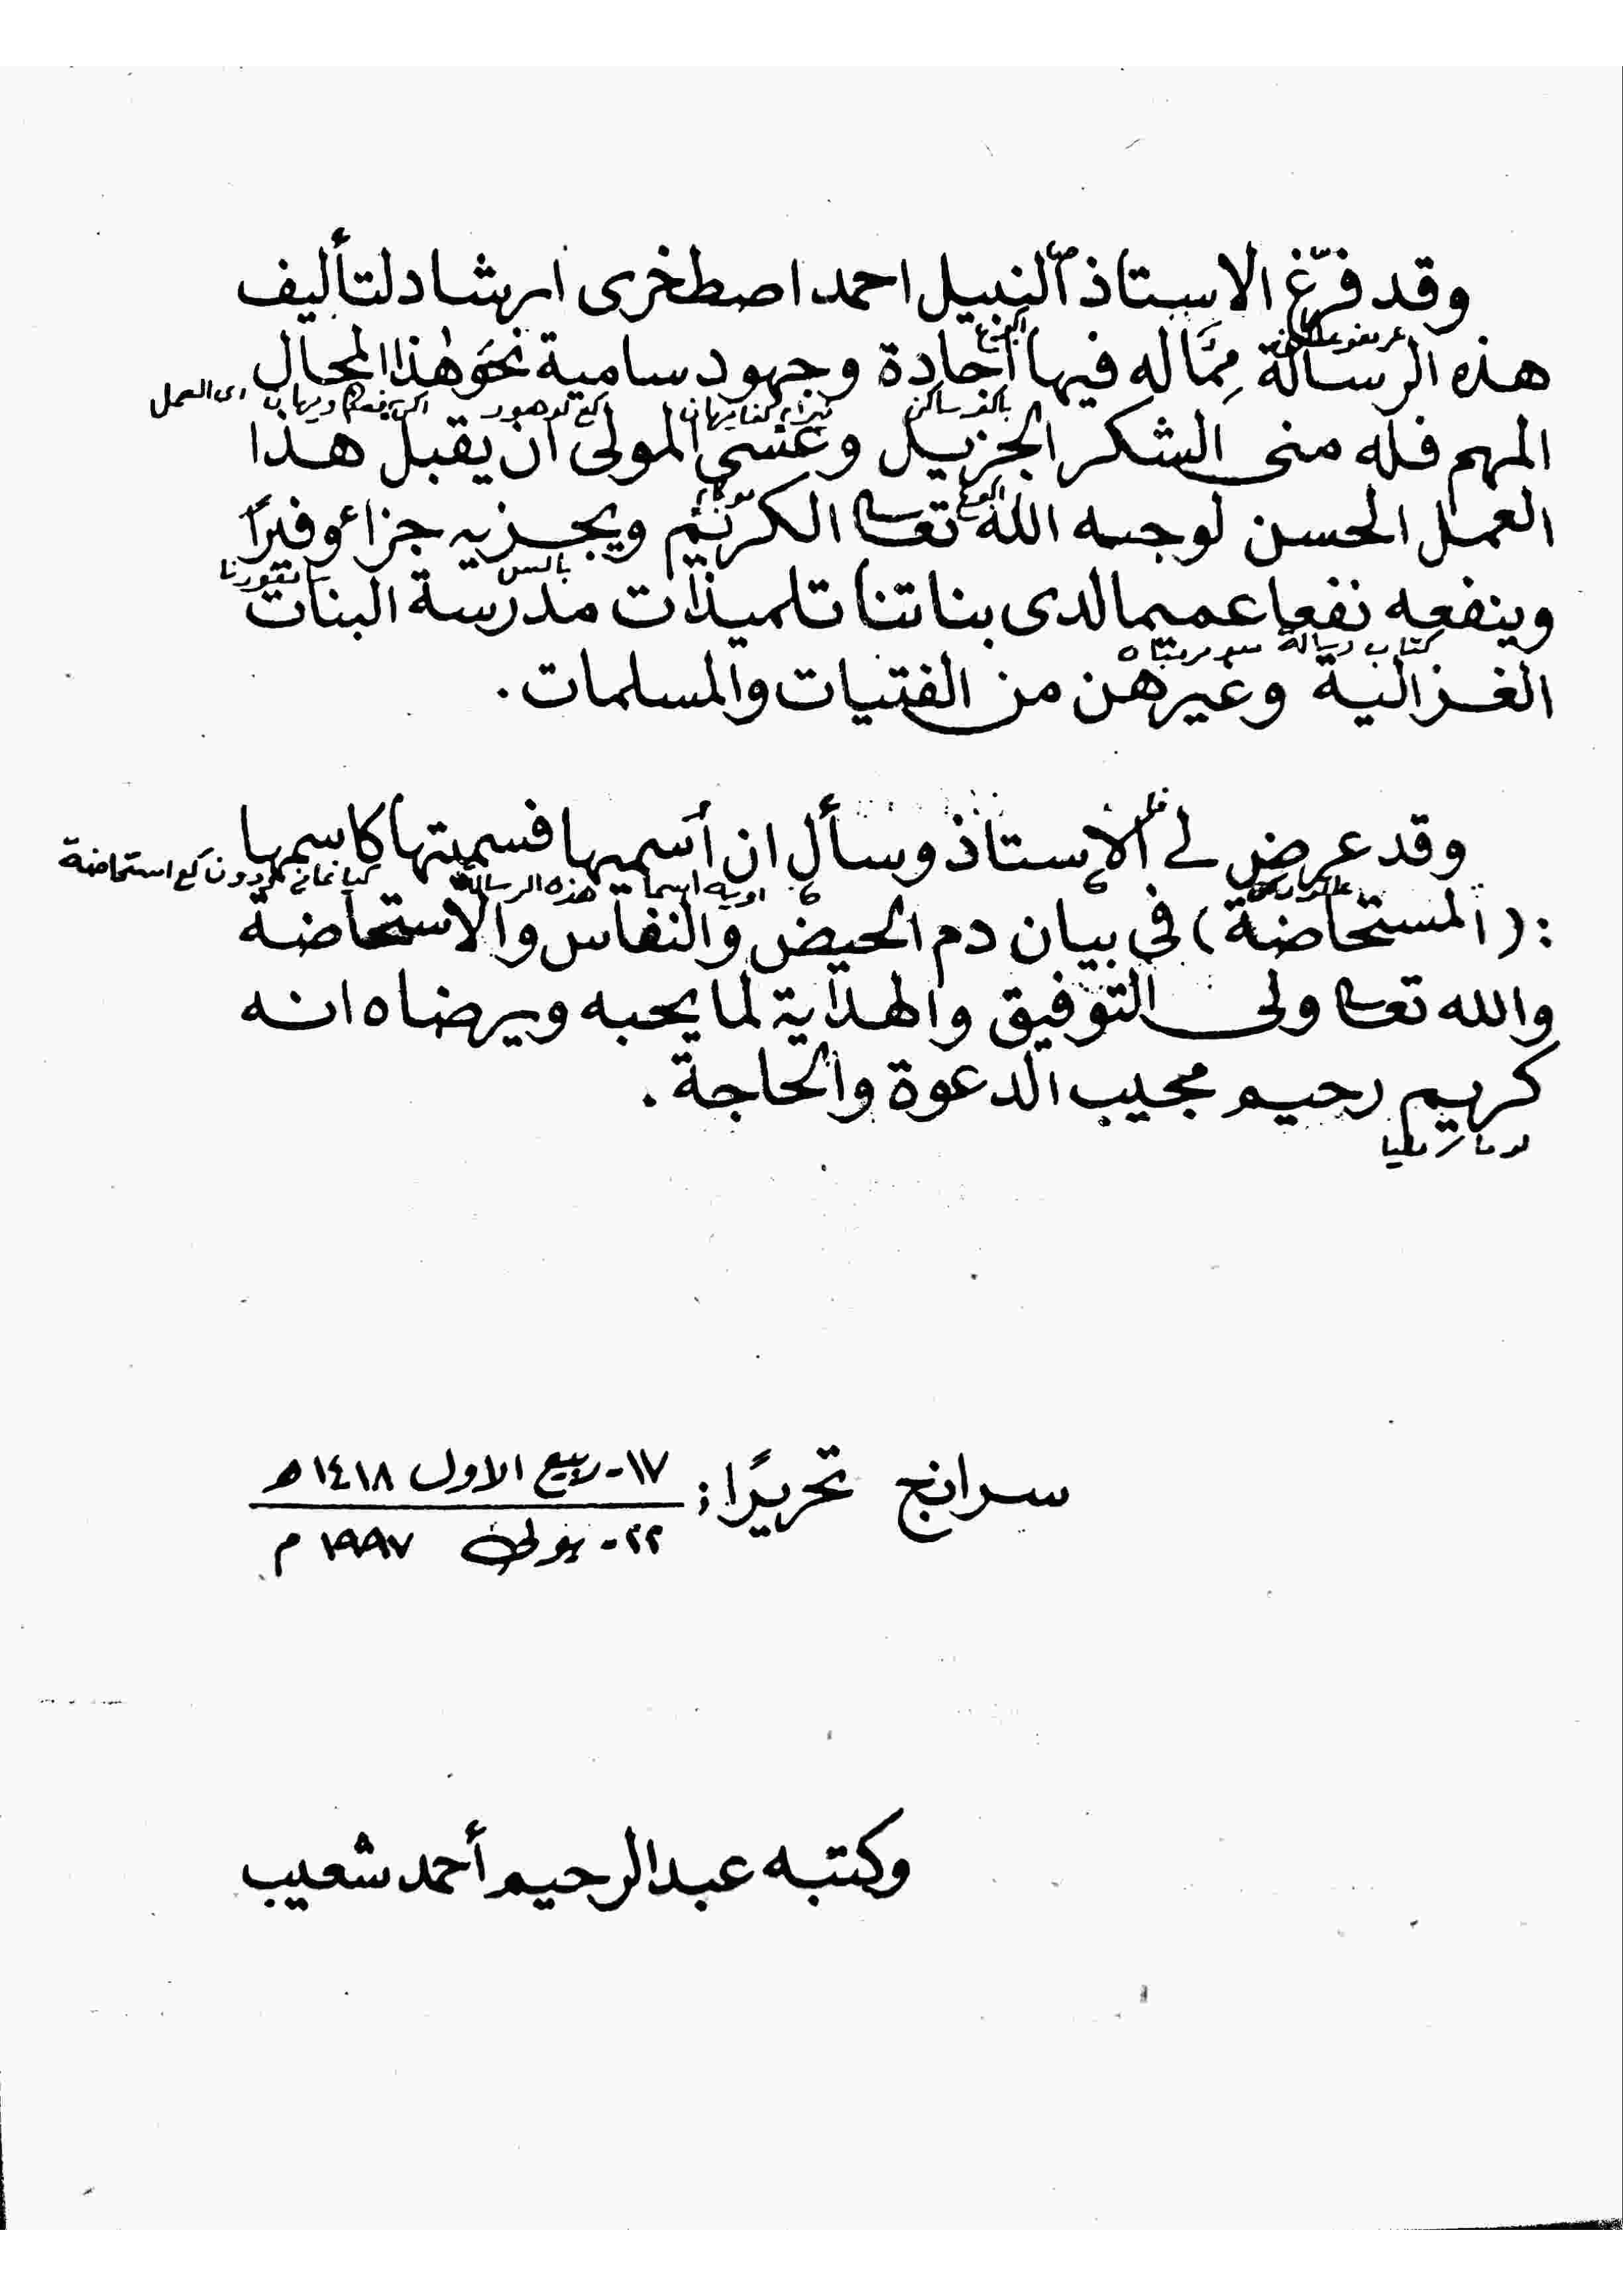 وقد فرّغ الاستاذ النبيل احمد اصطخرى ارشاد لتأليف
هذه الرسالة مِمَّا له فيها اجادة وجهود سامية نحو هٰذا المجال
اى العمل
المهم فله منى الشكر الجزيل وعسى المولى ان يقبل هذا
العمل الحسن لوجه الله تعالى الكريم ويجزيه جزائو فيرًا
وينفعه نفعا عميما لدى بناتنا تلميذات مدرسة البنات
كتاب رسالة
الغزالية وغيرهن من الفتيات والمسلمات.
وقد عرض لى الاستاذ وسأل ان أسميها فسميتها كاسمها
هذه الرسالة استحاضة
: (المستحاضة) في بيان دم الحيض والنفاس والاستحاضة
والله تعالى ولى التوفيق والهداية لما يحبه ويرضاه انه
كريم رحيم مجيب الدعوة والحاجة.
سرانج تحريرًا: ١٧- ربيع الاول ١٤١٨ ه
٢٢- يولى ١٩٩٧ م
وكتبه عبد الرحيم أحمد شعيب